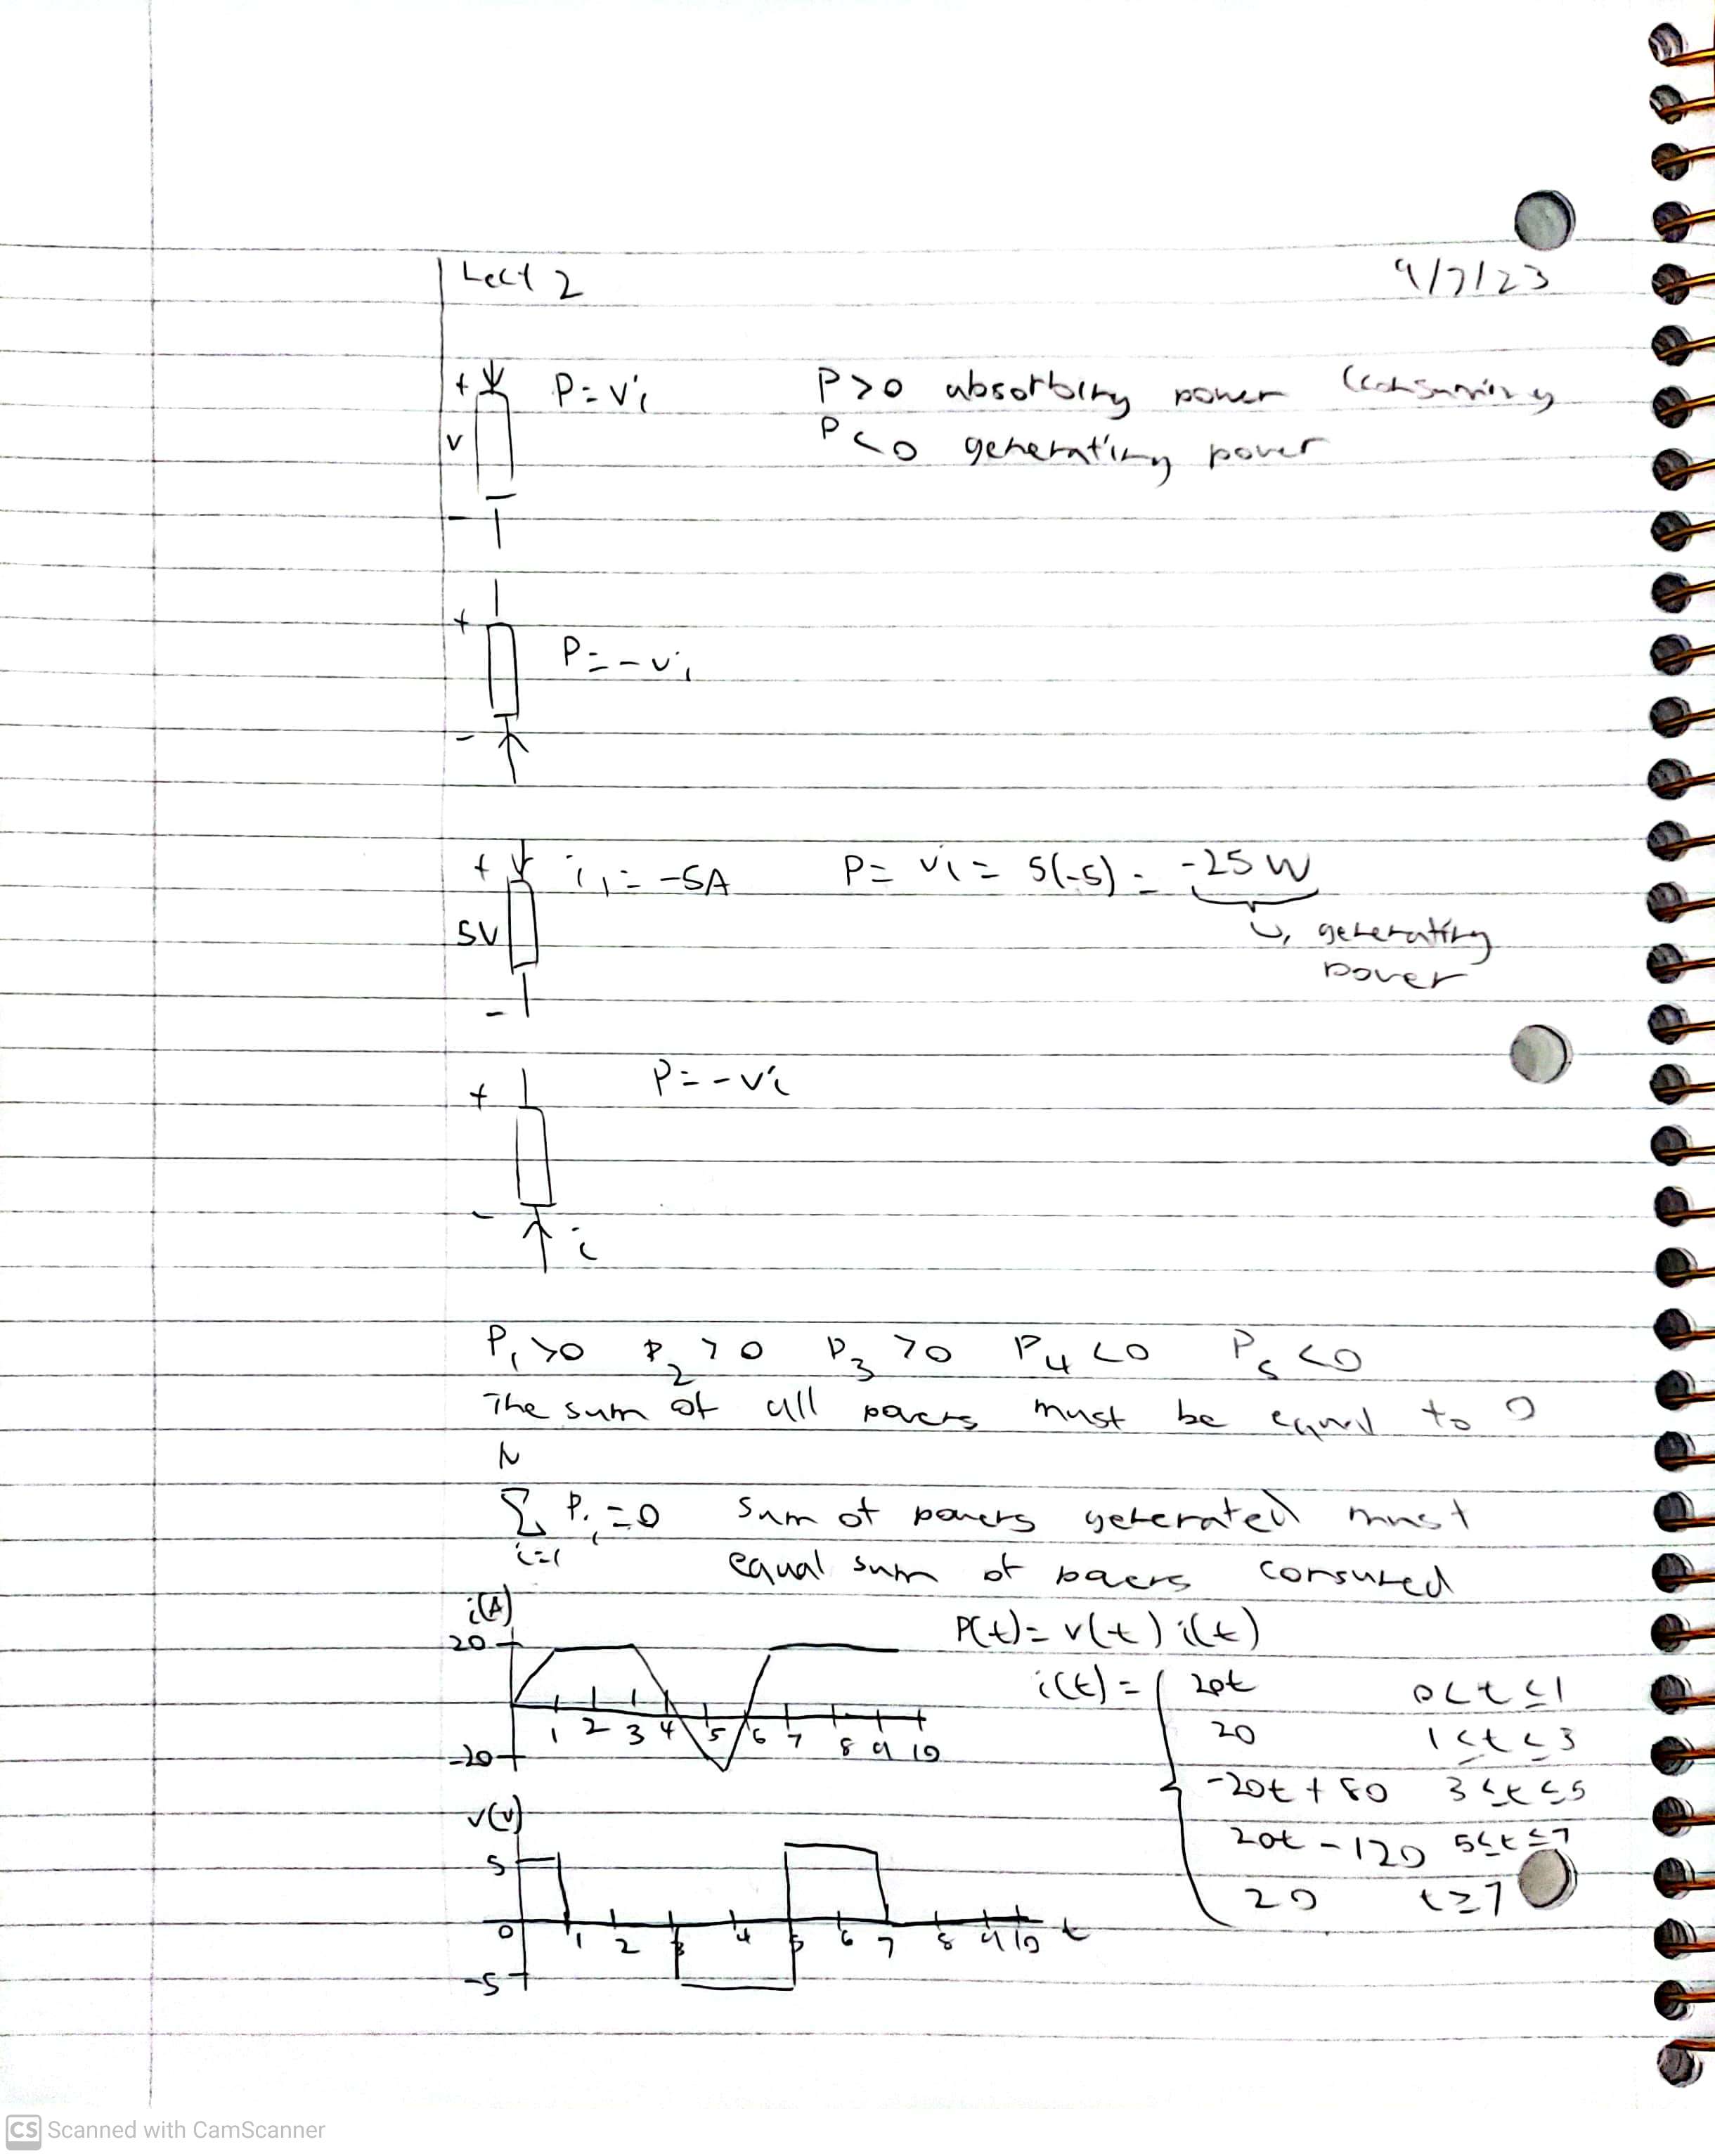 Lect 2 9/7/23
+ P=Vi P>0 absorbing power (consuming
V P<0 generating power
-
+
P=-vi
-
+ i₁=-5A P= Vi= 5(-5)= -25 W
5V ↳ generating
power
-
P=-vi
+
-
i
P₁>0 P₂>0 P₃>0 P₄<0 P₅<0
The sum of all powers must be equal to 0
N
Σ Pᵢ=0 sum of powers generated must
i=1 equal sum of powers consumed
i(A)
20 P(t)= v(t) i(t)
i(t)= { 20t 0<t≤1
1 2 3 4 5 6 7 8 9 10 20 1≤t≤3
-20 -20t+80 3≤t≤5
v(v) 20t-120 5≤t≤7
5 20 t≥7
0 1 2 3 4 5 6 7 8 9 10 t
-5
CS Scanned with CamScanner